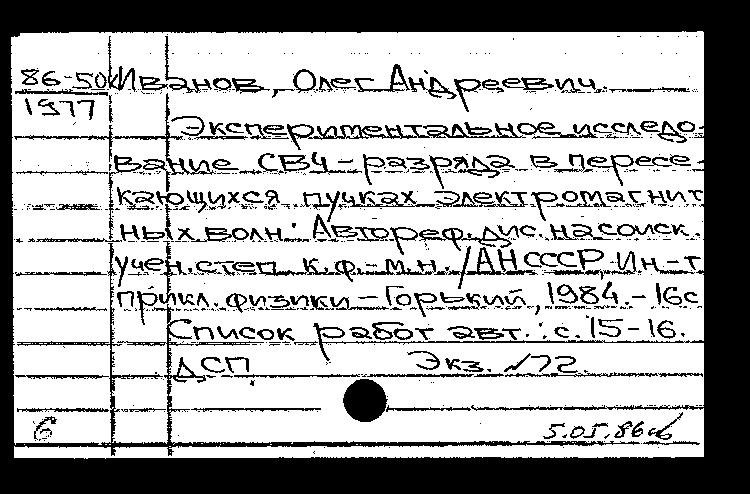 86-50 Иванов, Олег Андреевич.
1977
Экспериментальное исследо-
вание СВЧ-разряда в пересе-
кающихся пучках электромагнит
ных волн: Автореф. дис. на соиск.
учен. степ. к.ф.-м.н. / АН СССР. Ин-т
прикл. физики - Горький, 1984. - 16с
Список работ авт.: с. 15-16.
ДСП. Экз. №72.
6 5.05.86